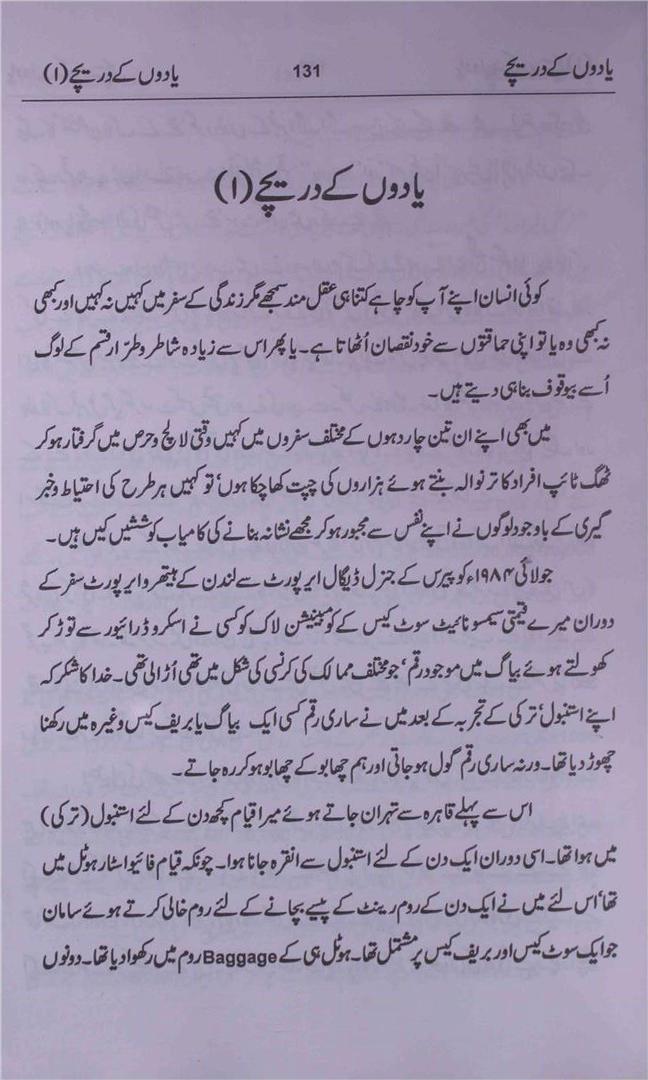 یادوں کے دریچے 131 یادوں کے دریچے (۱)
یادوں کے دریچے (۱)
کوئی انسان اپنے آپ کو چاہے کتنا ہی عقل مند سمجھے مگر زندگی کے سفر میں کہیں نہ کہیں اور کبھی
نہ کبھی وہ یا تو اپنی حماقتوں سے خود نقصان اُٹھاتا ہے۔ یا پھر اس سے زیادہ شاطر و طرّار قسم کے لوگ
اُسے بیوقوف بنا ہی دیتے ہیں۔
میں بھی اپنے ان تین چار دہوں کے مختلف سفروں میں کہیں وقتی لالچ و حرص میں گرفتار ہو کر
ٹھگ ٹائپ افراد کا تر نوالہ بنتے ہوئے ہزاروں کی چپت کھا چکا ہوں‘ تو کہیں ہر طرح کی احتیاط و خبر
گیری کے باوجود لوگوں نے اپنے نفس سے مجبور ہو کر مجھے نشانہ بنانے کی کامیاب کوششیں کیں ہیں۔
جولائی ۱۹۸۴ء کو پیرس کے جنرل ڈیگال ایرپورٹ سے لندن کے ہیتھرو ایرپورٹ سفر کے
دوران میرے قیمتی سیمسونائیٹ سوٹ کیس کے کومبینیشن لاک کو کسی نے اسکرو ڈرائیور سے توڑ کر
کھولتے ہوئے بیاگ میں موجود رقم‘ جو مختلف ممالک کی کرنسی کی شکل میں تھی اُڑالی تھی۔ خدا کا شکر کہ
اپنے استنبول‘ ترکی کے تجربہ کے بعد میں نے ساری رقم کسی ایک بیاگ یا بریف کیس وغیرہ میں رکھنا
چھوڑ دیا تھا۔ ورنہ ساری رقم گول ہو جاتی اور ہم چھابو کے چھابو ہو کر رہ جاتے۔
اس سے پہلے قاہرہ سے تہران جاتے ہوئے میرا قیام کچھ دن کے لئے استنبول (ترکی)
میں ہوا تھا۔ اسی دوران ایک دن کے لئے استنبول سے انقرہ جانا ہوا۔ چونکہ قیام فائیو اسٹار ہوٹل میں
تھا‘ اس لئے میں نے ایک دن کے روم رینٹ کے پیسے بچانے کے لئے روم خالی کرتے ہوئے سامان
جو ایک سوٹ کیس اور بریف کیس پر مشتمل تھا۔ ہوٹل ہی کے Baggage روم میں رکھوا دیا تھا۔ دونوں